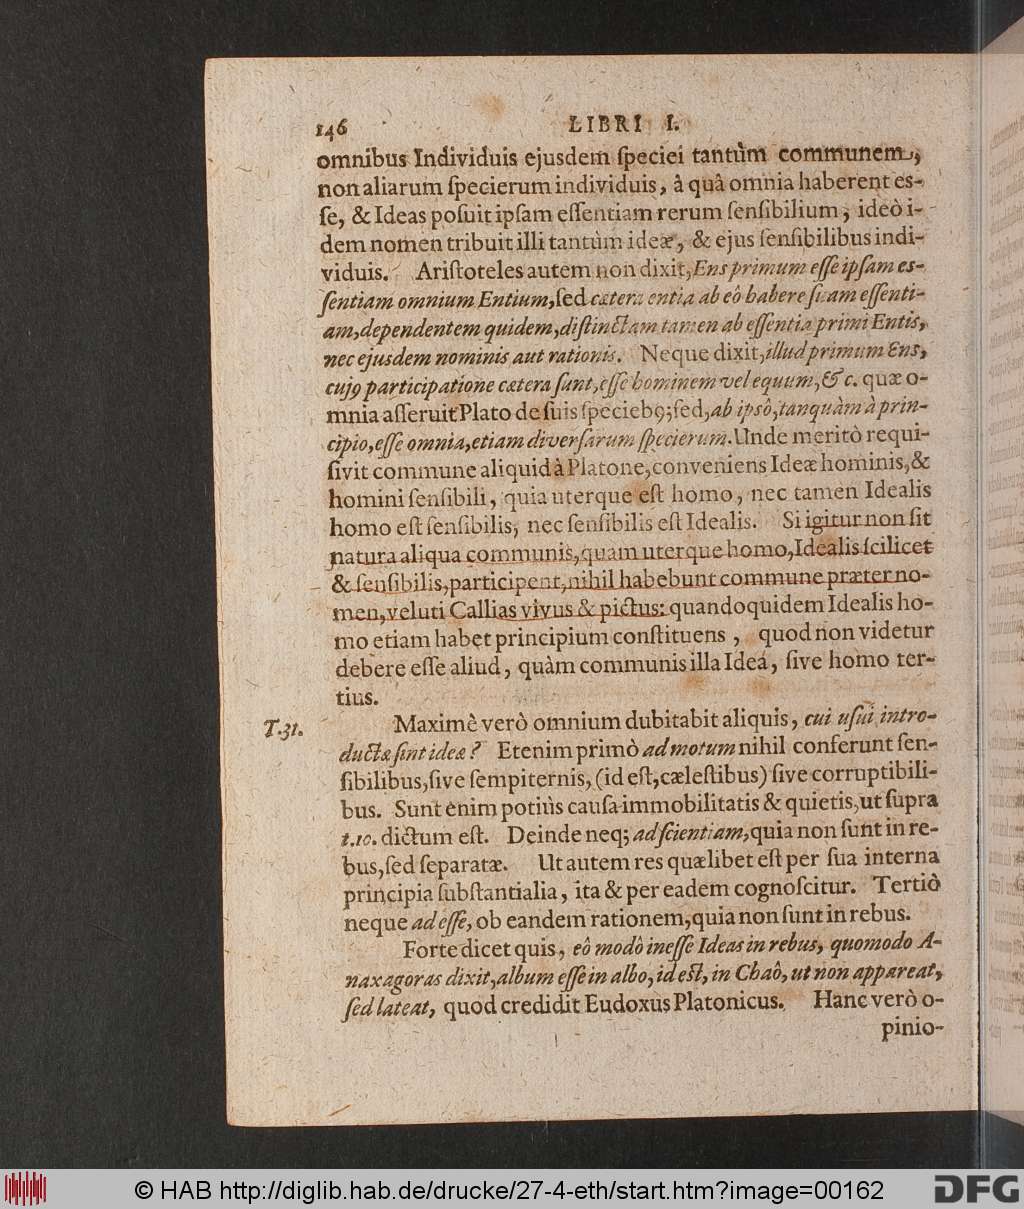 146 LIBRI I.
omnibus Individuis ejusdem ſpeciei tantùm communem,
non aliarum ſpecierum individuis, à quâ omnia haberent eſ-
ſe, & Ideas poſuit ipſam eſſentiam rerum ſenſibilium; ideò i-
dem nomen tribuit illi tantùm ideæ, & ejus ſenſibilibus indi-
viduis. Ariſtoteles autem non dixit, Ens primum eſſe ipſam es-
ſentiam omnium Entium, ſed cætera entia ab eô habere ſuam eſſenti-
am, dependentem quidem, diſtinctam tamen ab eſſentia primi Entis,
nec ejusdem nominis aut rationis. Neque dixit, illud primum Ens,
cujꝯ participatione cætera ſunt, eſſe hominem vel equum, &c. quæ o-
mnia aſſeruit Plato de ſuis ſpeciebꝯ; ſed, ab ipsô, tanquàm à prin-
cipio, eſſe omnia, etiam diverſarum ſpecierum. Unde meritò requi-
ſivit commune aliquid à Platone, conveniens Ideæ hominis, &
homini ſenſibili, quia uterque eſt homo, nec tamen Idealis
homo eſt ſenſibilis, nec ſenſibilis eſt Idealis. Si igitur non ſit
natura aliqua communis, quam uterque homo, Idealis ſcilicet
& ſenſibilis, participent, nihil habebunt commune præter no-
men, veluti Callias vivus & pictus: quandoquidem Idealis ho-
mo etiam habet principium conſtituens, quod non videtur
debere eſſe aliud, quàm communis illa Idea, ſive homo ter-
tius.
T.31. Maximè verò omnium dubitabit aliquis, cui uſui intro-
ductæ ſint ideæ? Etenim primò ad motum nihil conferunt ſen-
ſibilibus, ſive ſempiternis, (id eſt, cæleſtibus) ſive corruptibili-
bus. Sunt enim potiùs cauſa immobilitatis & quietis, ut ſupra
t.10. dictum eſt. Deinde neq; ad ſcientiam, quia non ſunt in re-
bus, ſed ſeparatæ. Ut autem res quælibet eſt per ſua interna
principia ſubſtantialia, ita & per eadem cognoſcitur. Tertiò
neque ad eſſe, ob eandem rationem, quia non ſunt in rebus.
Forte dicet quis, eô modô ineſſe Ideas in rebus, quomodo A-
naxagoras dixit, album eſſe in albo, id eſt, in Chaô, ut non appareat,
ſed lateat, quod credidit Eudoxus Platonicus. Hanc verò o-
pinio-
© HAB http://diglib.hab.de/drucke/27-4-eth/start.htm?image=00162
DFG